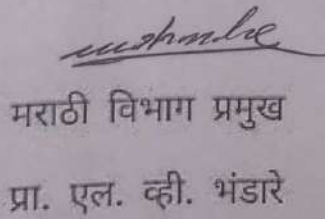 मराठी विभाग प्रमुख
प्रा. एल. व्ही. भंडारे